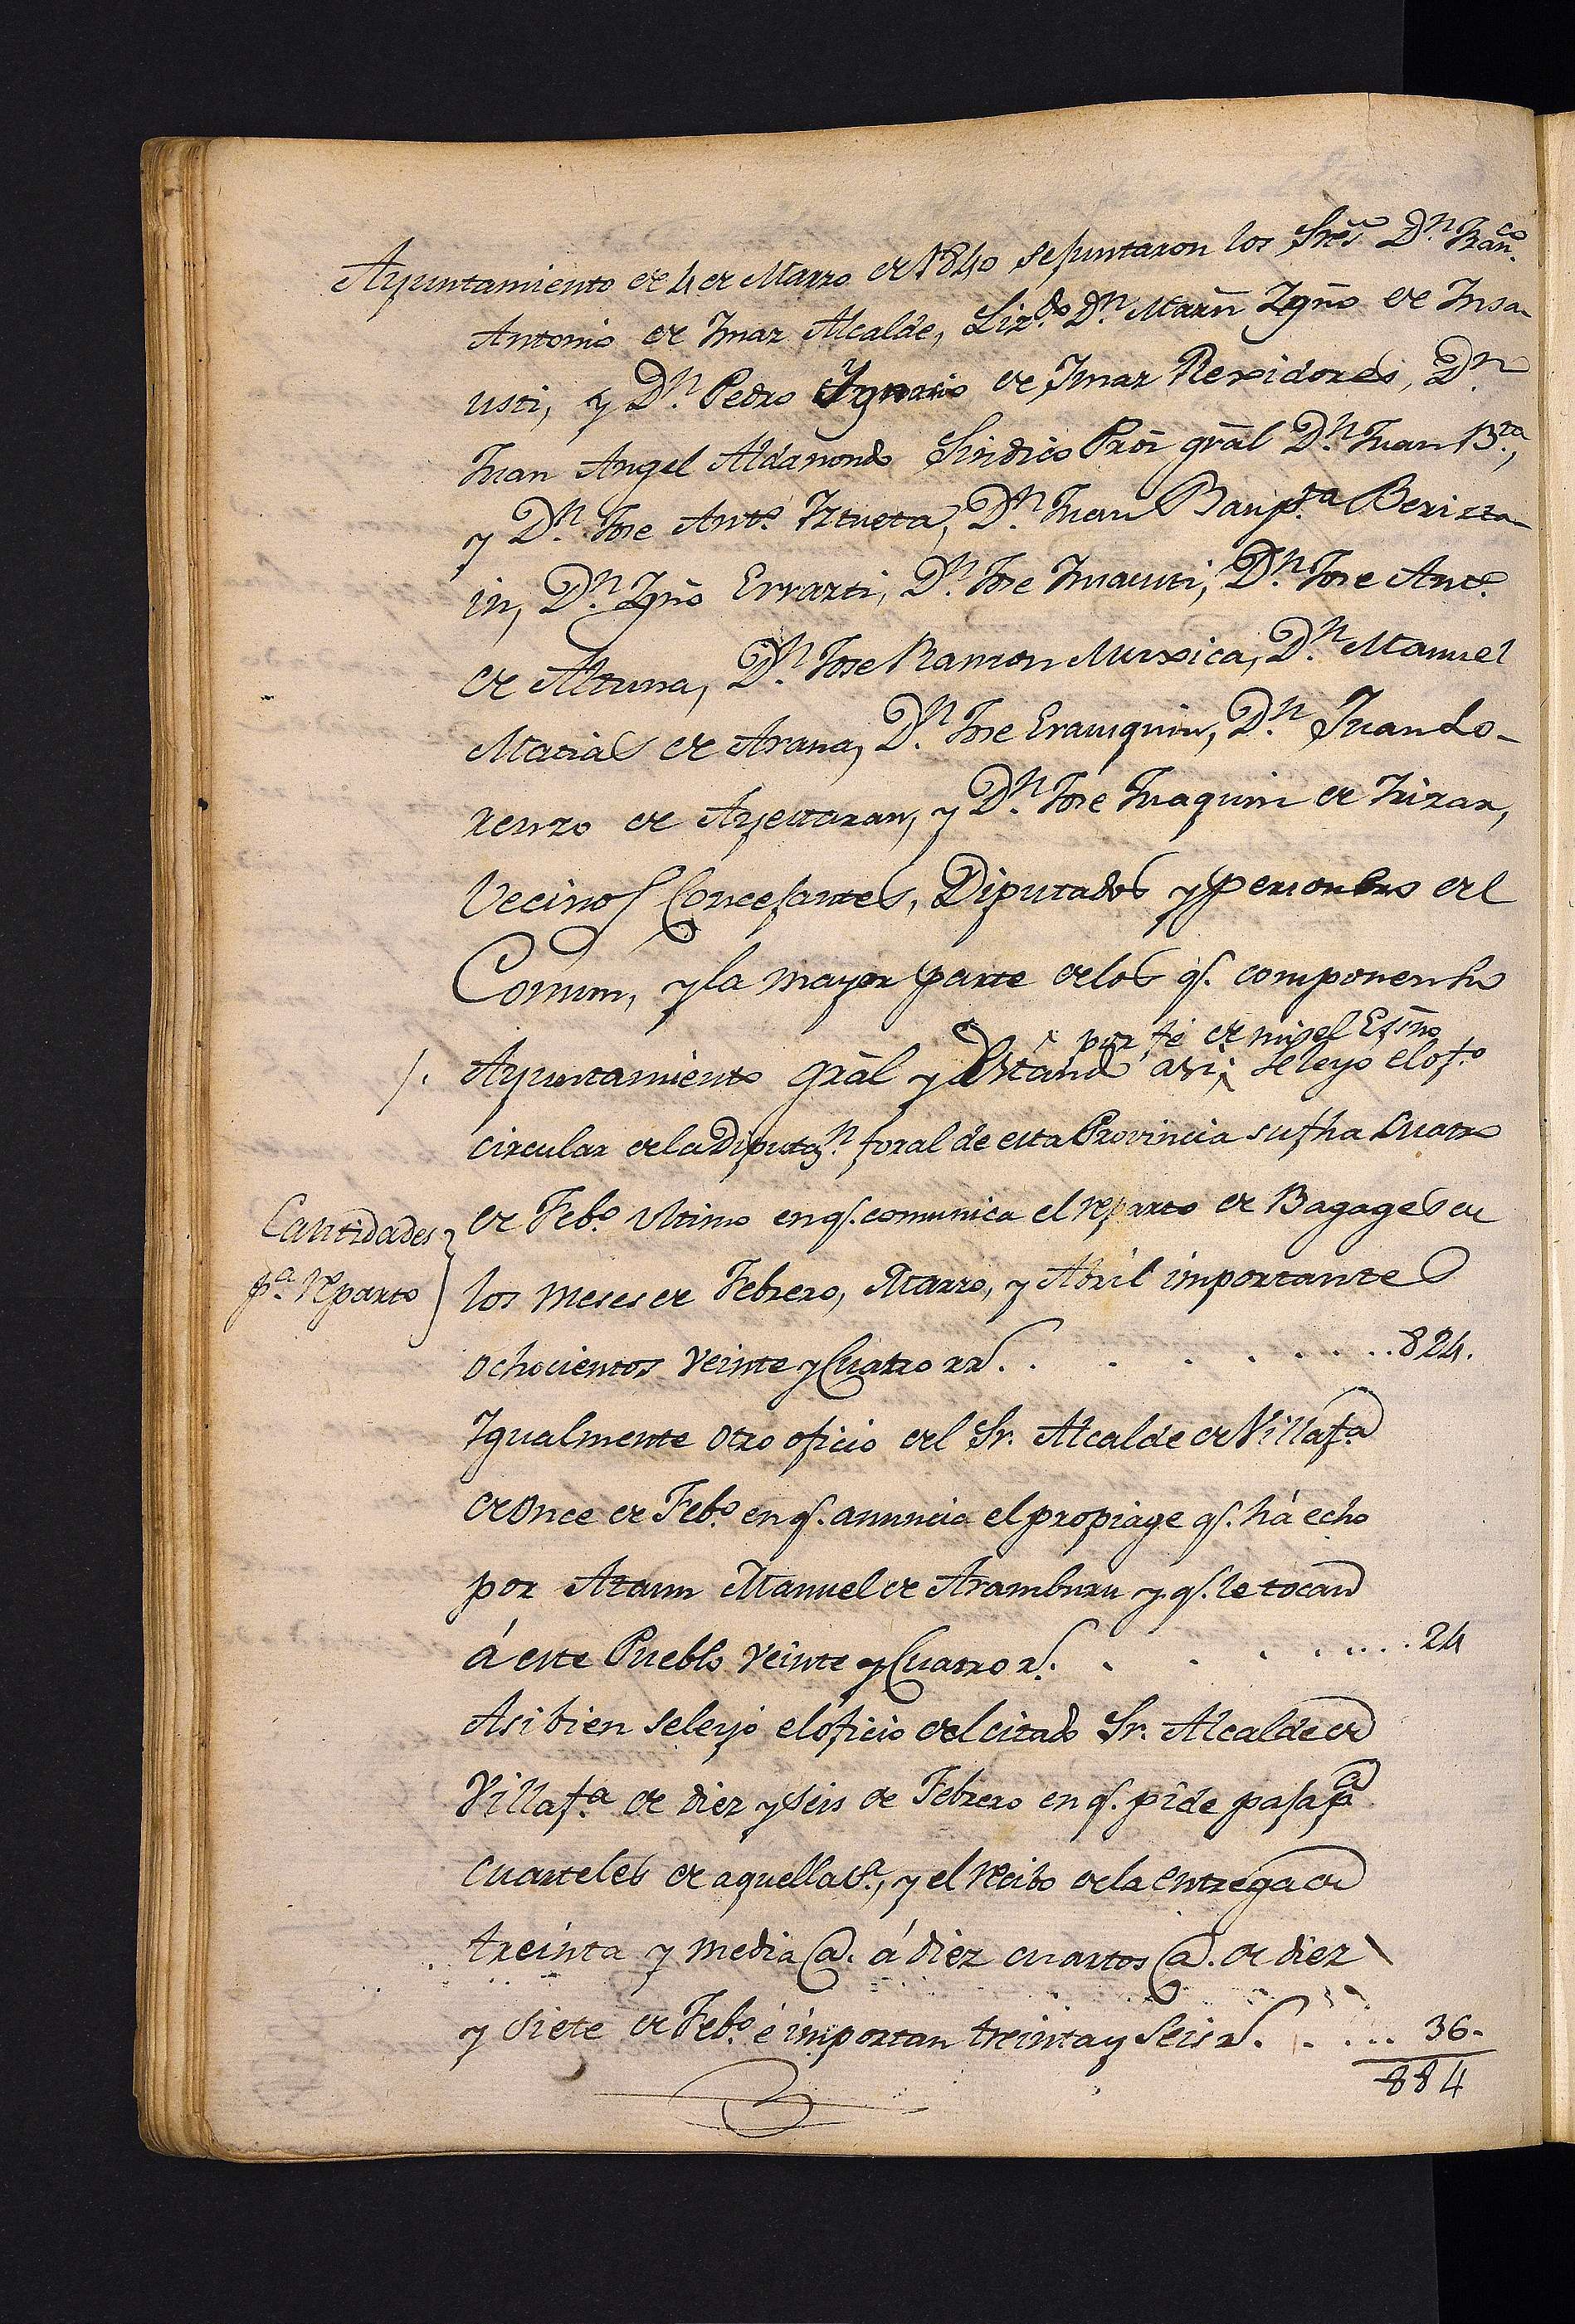 Ayuntamiento de 4 de Marzo de 1840 se juntaron los Sres. Dn. Franco.
Antonio de Imaz Alcalde, Lizdo. Dn. Marn Igño de Insa-
usti, y Dn. Pedro Ignacio de Imaz Rexidores, Dn.
Juan Angel Aldañondo Sindico Prōr grāl Dn. Juan Bta.,
y Dn. Jose Anto. Iztueta, Dn. Juan Baupta. Berizta-
in, Dn. Igño Errazti, Dn. Jose Insausti, Dn. Jose Anto.
de Altuna, Dn. Jose Ramon Muxica, Dn. Manuel
Matias de Arana, Dn. Jose Erausquin, Dn. Juan Lo-
renzo de Ayestaran, y Dn. Jose Juaquin de Irizar,
Vecinos Concejantes, Diputados y Personero del
Comun, y la mayor parte de los q. componen su
por fé de mi, el Esño
/. Ayuntamiento grāl y estand asi, se leyo el ofo.
circular de la Diputazn. foral de esta Provincia su fha Cuatro
Cantidades
pa. reparto
de Febo. ultimo en q. comunica el reparto de Bagages en
los meses de Febrero, Marzo, y Abril importantes
ochocientos veinte y Cuatro rs. . . . . . . . . . 824.
Igualmente otro oficio del Sr. Alcalde de Villafa.
de once de Febo. en q. anuncia el propiage q. há echo
por Ataun Manuel de Aramburu y q. le tocan
á este Pueblo veinte y Cuatro rs. . . . . . . . . 24
Asi bien se leyó el oficio del citado Sr. Alcalde de
Villafa. de diez y seis de Febrero en q. pide paja pa.
Cuarteles de aquella Va., y el recibo de la entrega de
treinta y media @. á diez cuartos @. de diez
y siete de Febo. é importan treinta y seis rs. . . . . . 36.
884